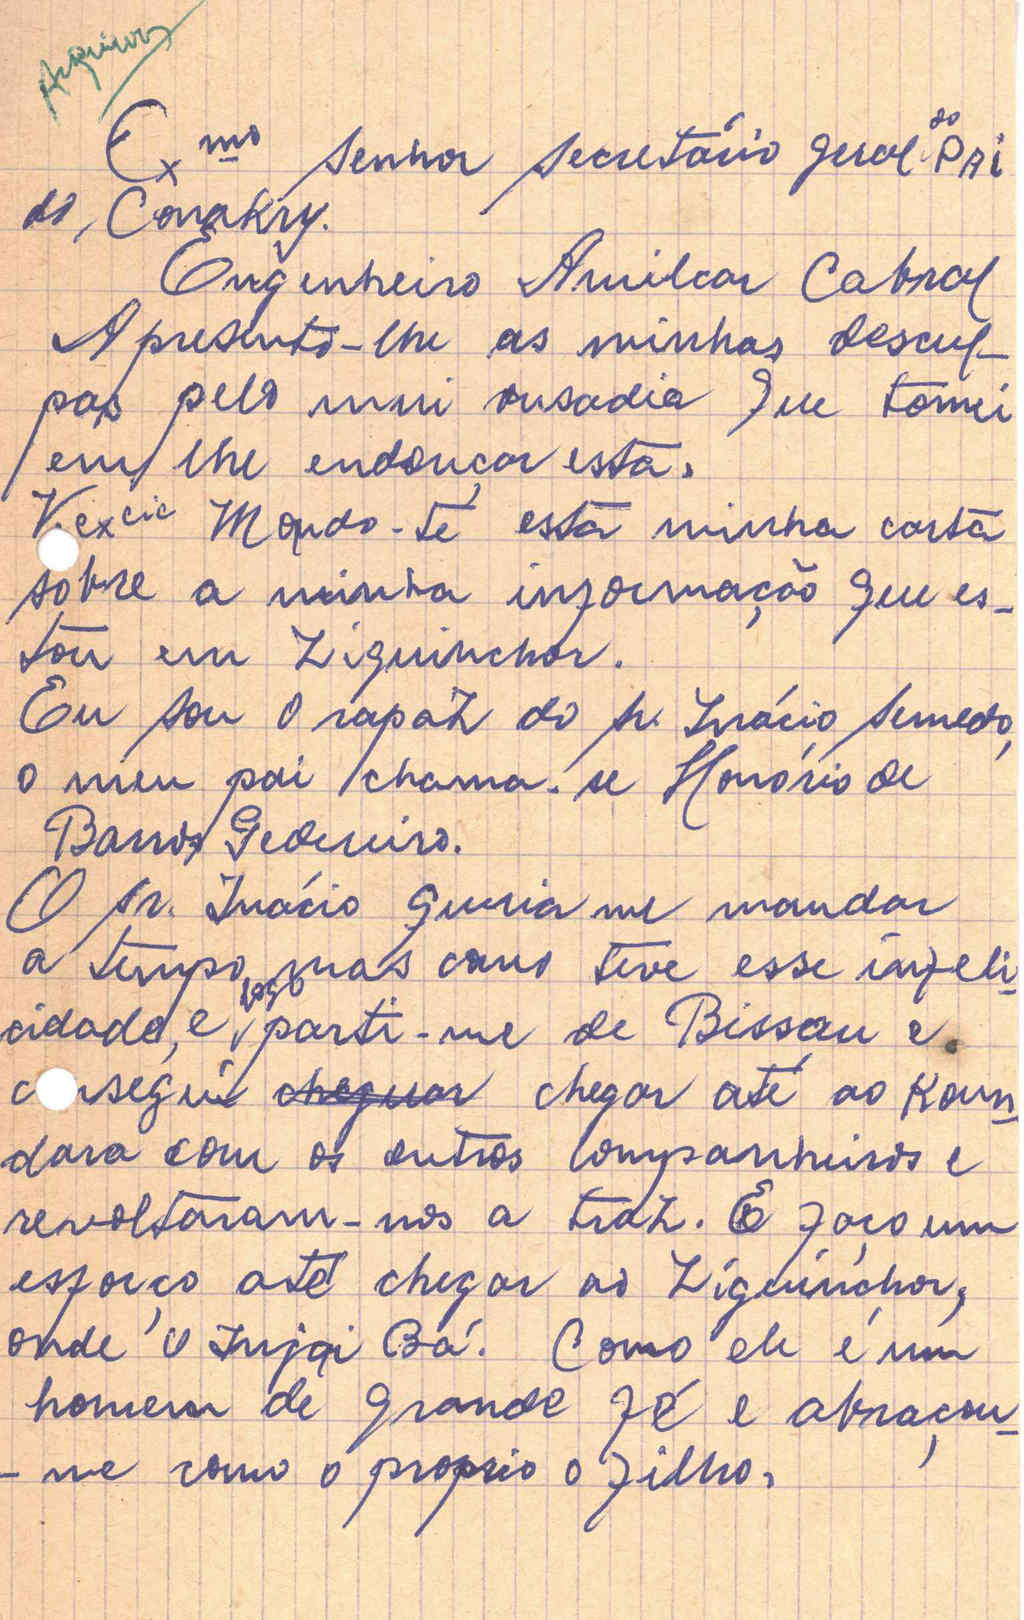 Arquivo
Exmo Senhor Secretário geral do PAI
do, Conakry.
Engenheiro Amilcar Cabral
Apresento-lhe as minhas descul-
pas pelo mui ousadia que tomei
em lhe endereçar esta.
V. excia Mando-te esta minha carta
sobre a minha informação que es-
tou em Ziguinchor.
Eu sou o rapaz do sr. Inácio Semedo,
o meu pai chama-se Honório de
Barros
O sr. Inácio queria me mandar
a tempo, mas como teve esse infeli-
cidade, e logo parti-me de Bissau e
consegui cheguar chegar até ao Koun
dara com os outros companheiros e
revoltaram-nos a traz. E faço um
esforço até chegar ao Ziguinchor,
onde o Injai Bá. Como ele é um
homem de grande fé e abraçou-
-me como o proprio o filho.